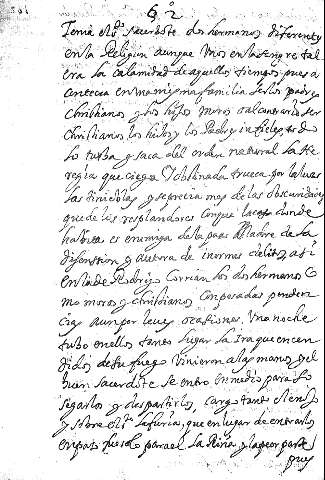 Tenia el Sto. sacerdote dos hermanos diferentes
en la Religion aunque unos en la sangre tal
era la calamidad de aquellos tiempos pues a
contecia en una misma familia ser los padres
Christianos y los hijos moros o al contrario ser
Christianos los hijos y los Padres infieles todo
lo turba y saca del orden natural la He
regia que ciega y obstinada trueca por la luz
las tinieblas y se precia mas de las obscuridades
que de los resplandores con que nace donde
habita es enemiga de la paz Madre de la
disension y autora de inormes delitos asi
en la de Rodrigo Corrian los dos hermanos Co
mo moros y christianos con pesadas penden
cias aun por leves ocasiones. Una noche
tubo en ellos tanto lugar la Ira que encen
didos de su fuego vinieron a las manos, el
buen sacerdote se entro en medio para so
segarlos y despartirlos, cargo tanto
y sobre el la furia, que en lugar de entrarlos
en paz para el la Riña y la peor parte
pues